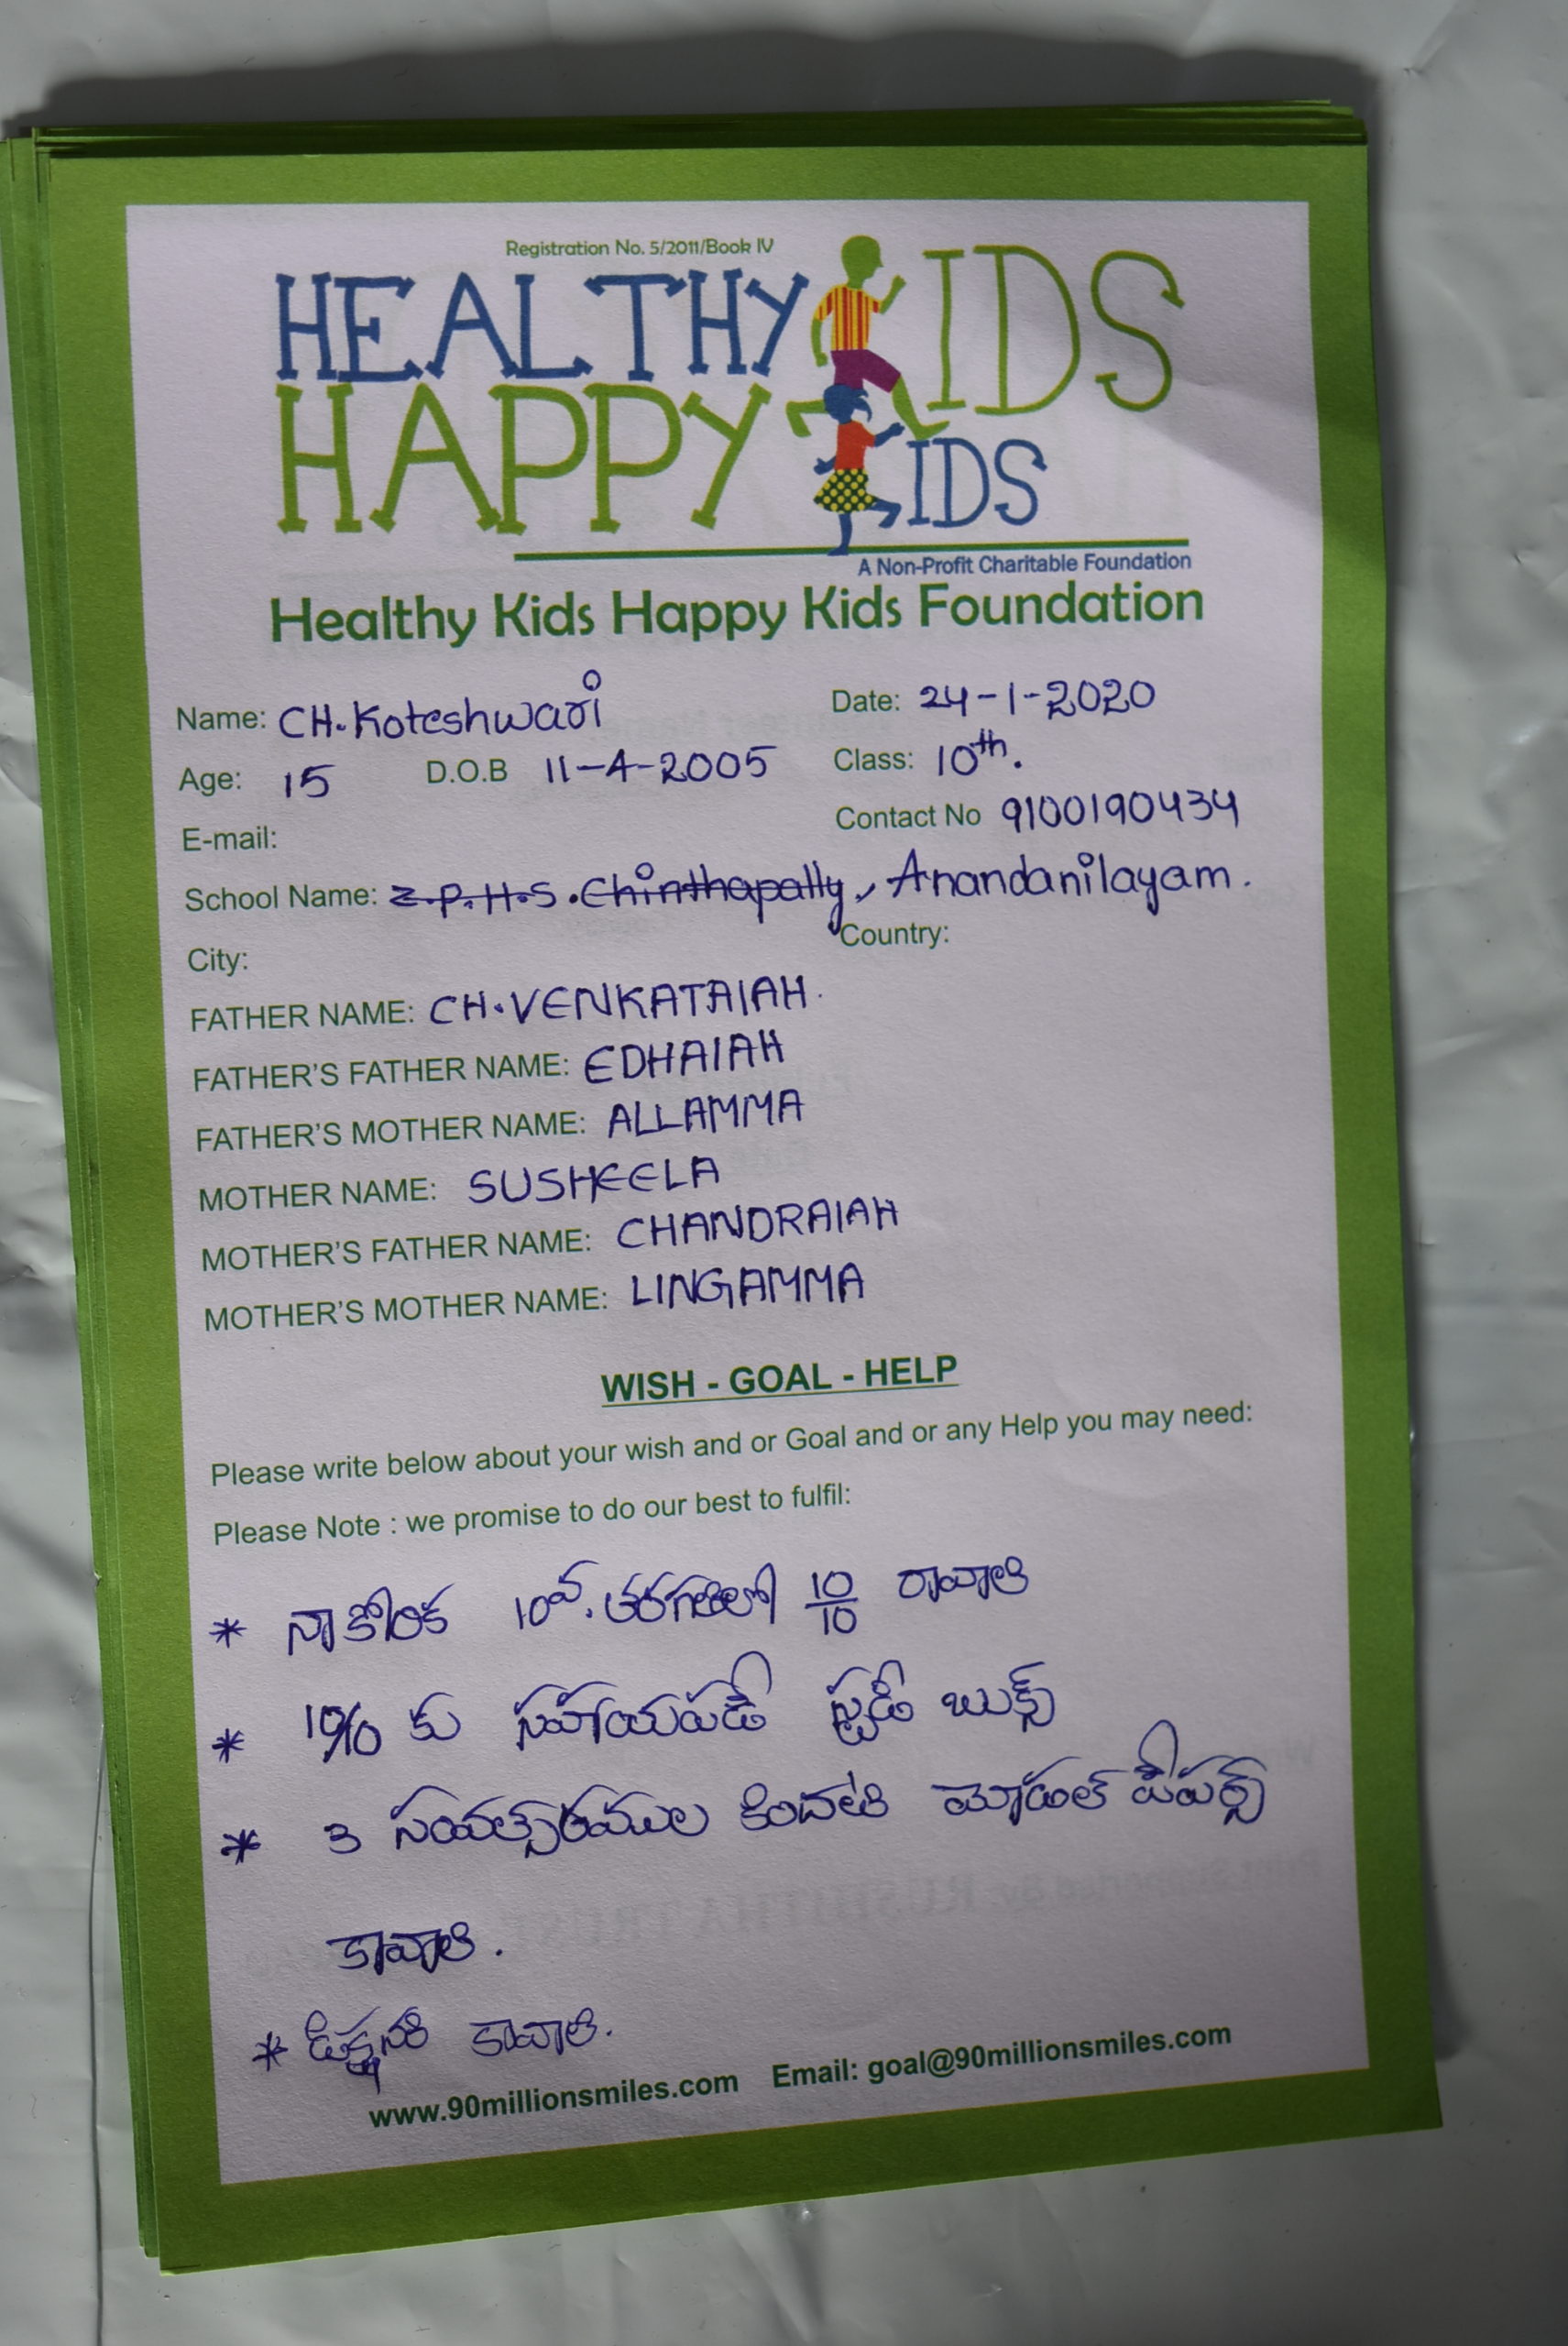 Registration No. 5/2011/Book IV
HEALTHY KIDS
HAPPY KIDS
A Non-Profit Charitable Foundation
Healthy Kids Happy Kids Foundation
Name: CH. Koteshwari Date: 24-1-2020
Age: 15 D.O.B 11-4-2005 Class: 10th.
E-mail: Contact No 9100190434
School Name: Z.P.H.S. Chinthapally, Anandanilayam.
City: Country:
FATHER NAME: CH. VENKATAIAH.
FATHER'S FATHER NAME: EDHAIAH
FATHER'S MOTHER NAME: ALLAMMA
MOTHER NAME: SUSHEELA
MOTHER'S FATHER NAME: CHANDRAIAH
MOTHER'S MOTHER NAME: LINGAMMA
WISH - GOAL - HELP
Please write below about your wish and or Goal and or any Help you may need:
Please Note : we promise to do our best to fulfil:
* నా కోరిక 10వ. తరగతిలో 10/10 రావాలి
* 10/10 కు సహాయపడే స్టడీ బుక్స్
* 3 సంవత్సరముల కిందటి మోడల్ పేపర్స్
కావాలి.
* డిక్షనరి కావాలి.
www.90millionsmiles.com Email: goal@90millionsmiles.com